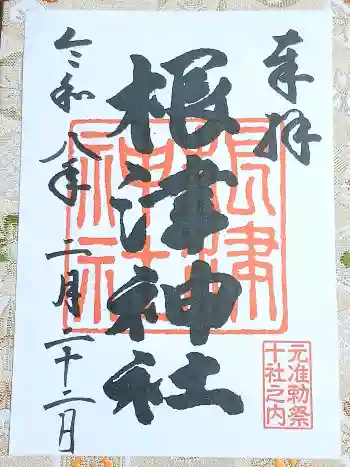 奉拝
根津神社
令和八年二月二十二日
根津神社
元准勅祭
十社之内